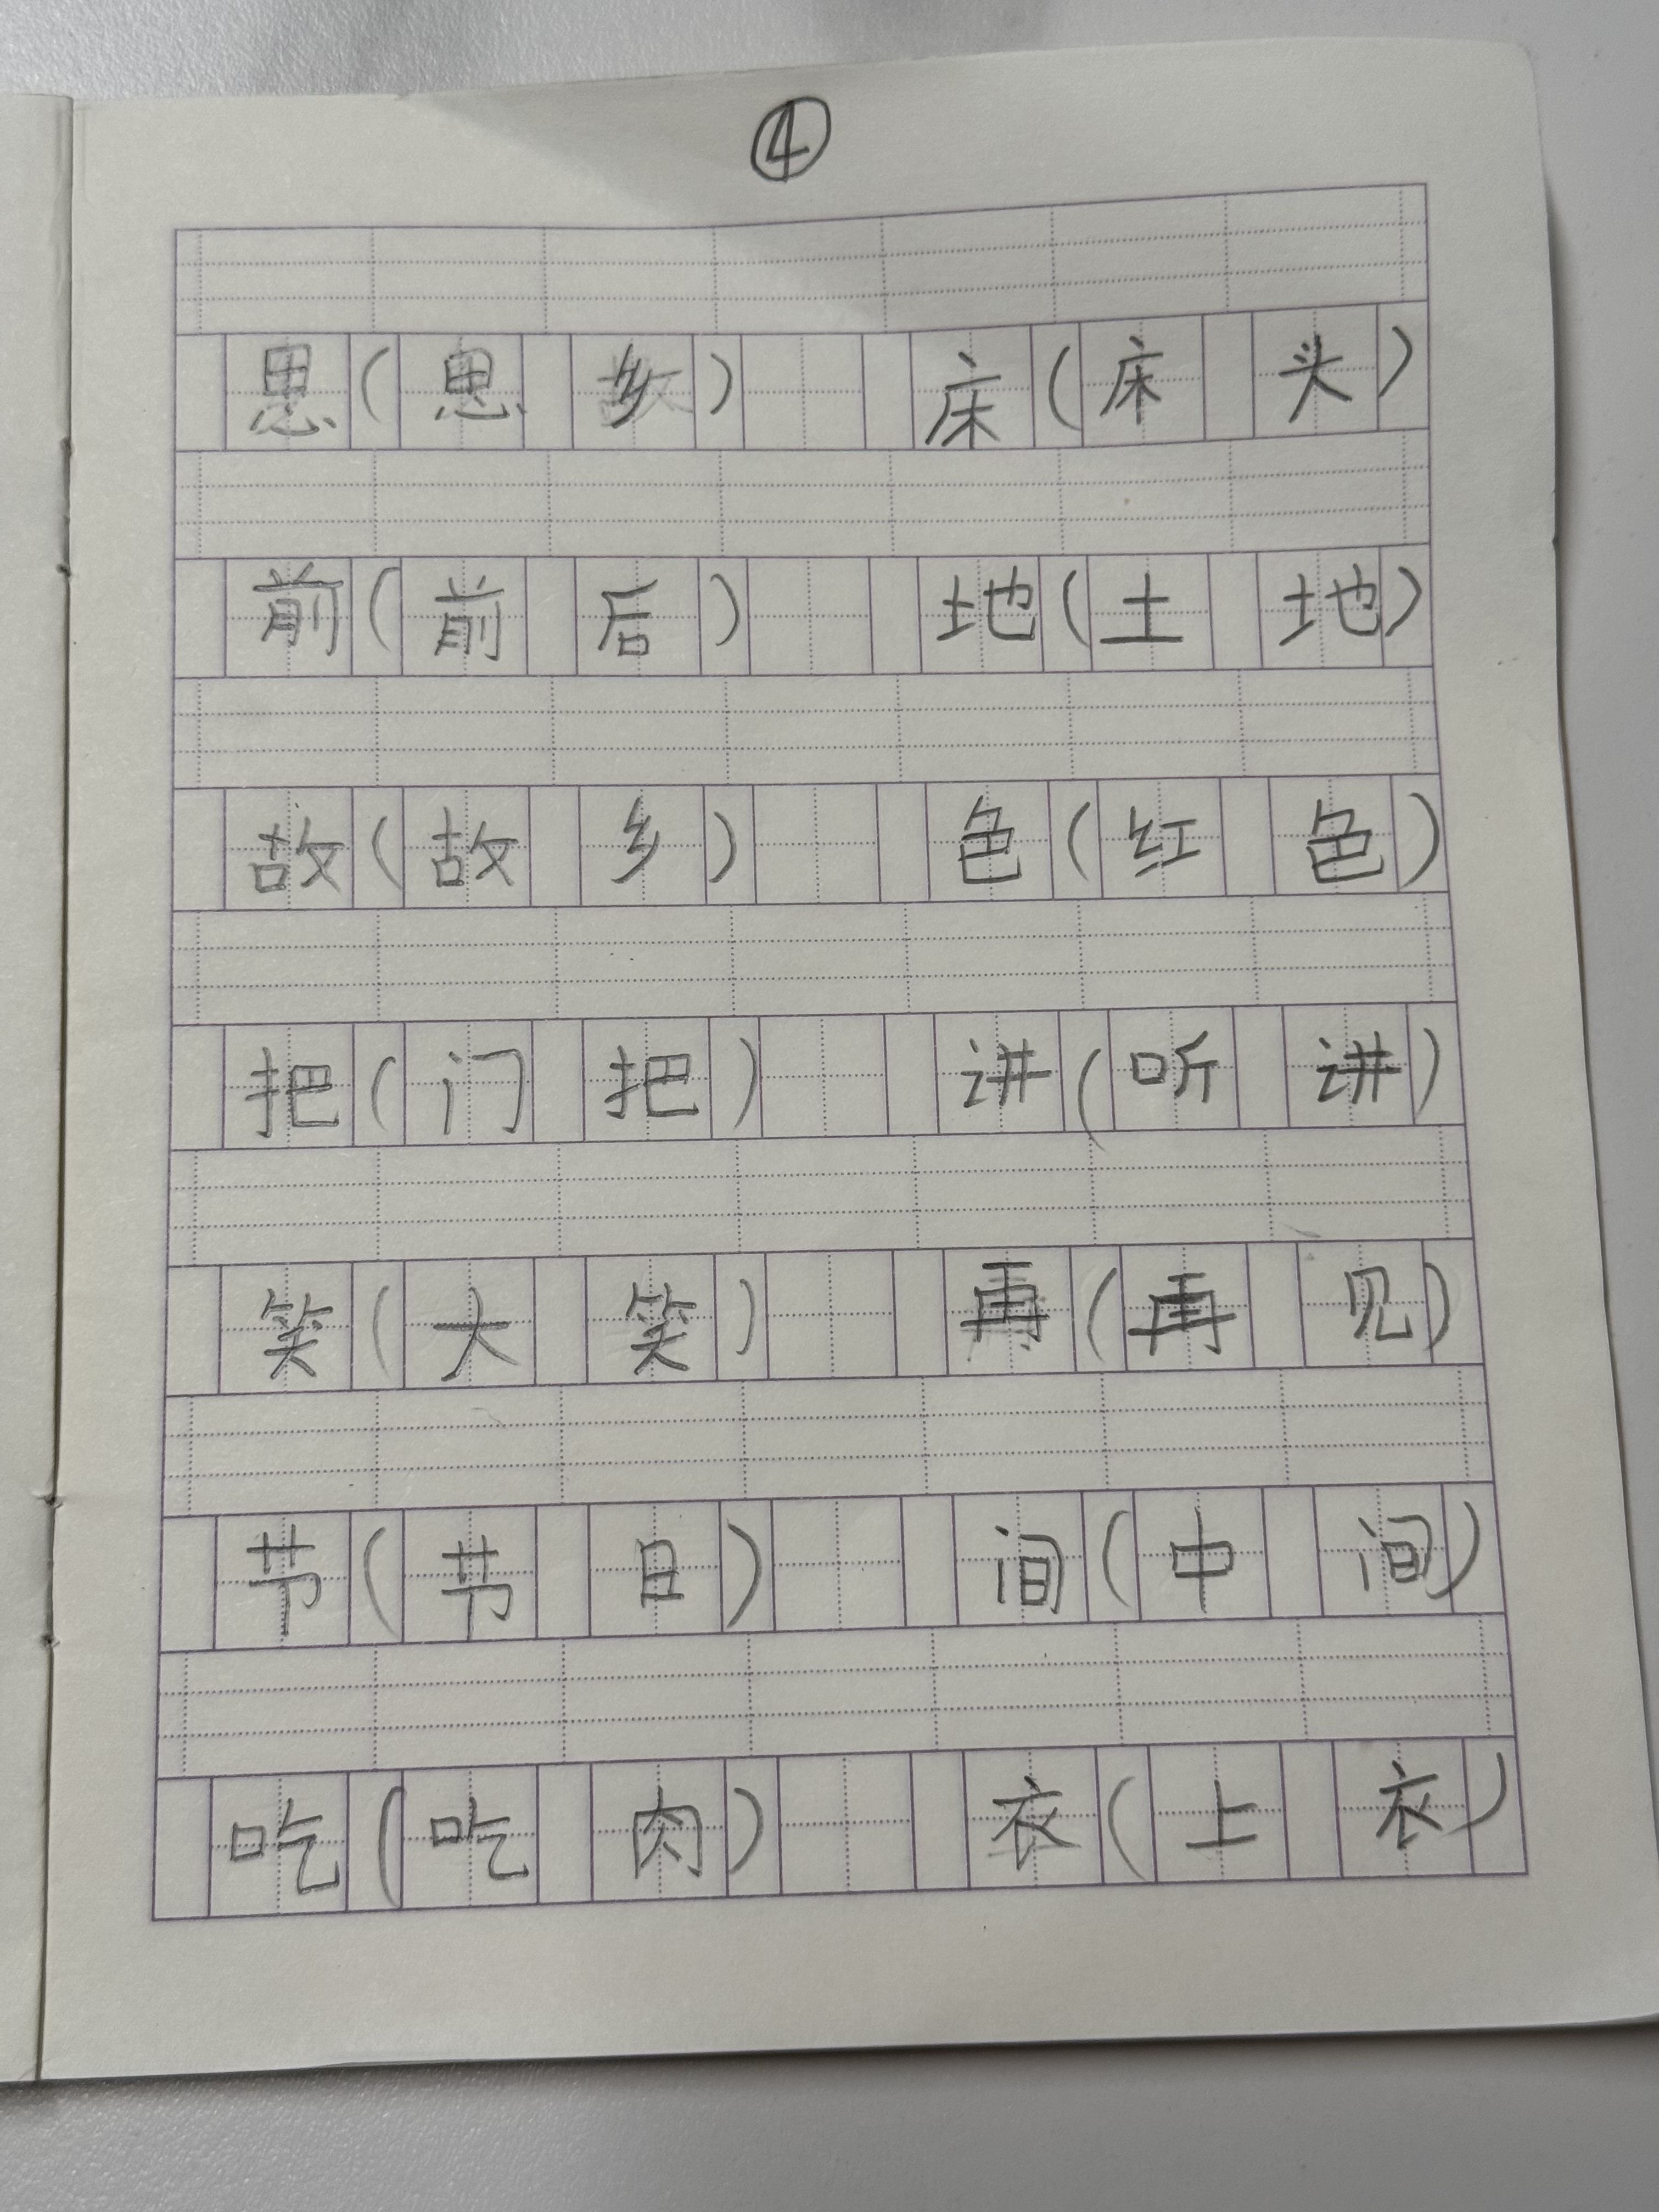 ④
思(思乡) 床(床头)
前(前后) 地(土地)
故(故乡) 色(红色)
把(门把) 讲(听讲)
笑(大笑) 再(再见)
节(节日) 间(中间)
吃(吃肉) 衣(上衣)